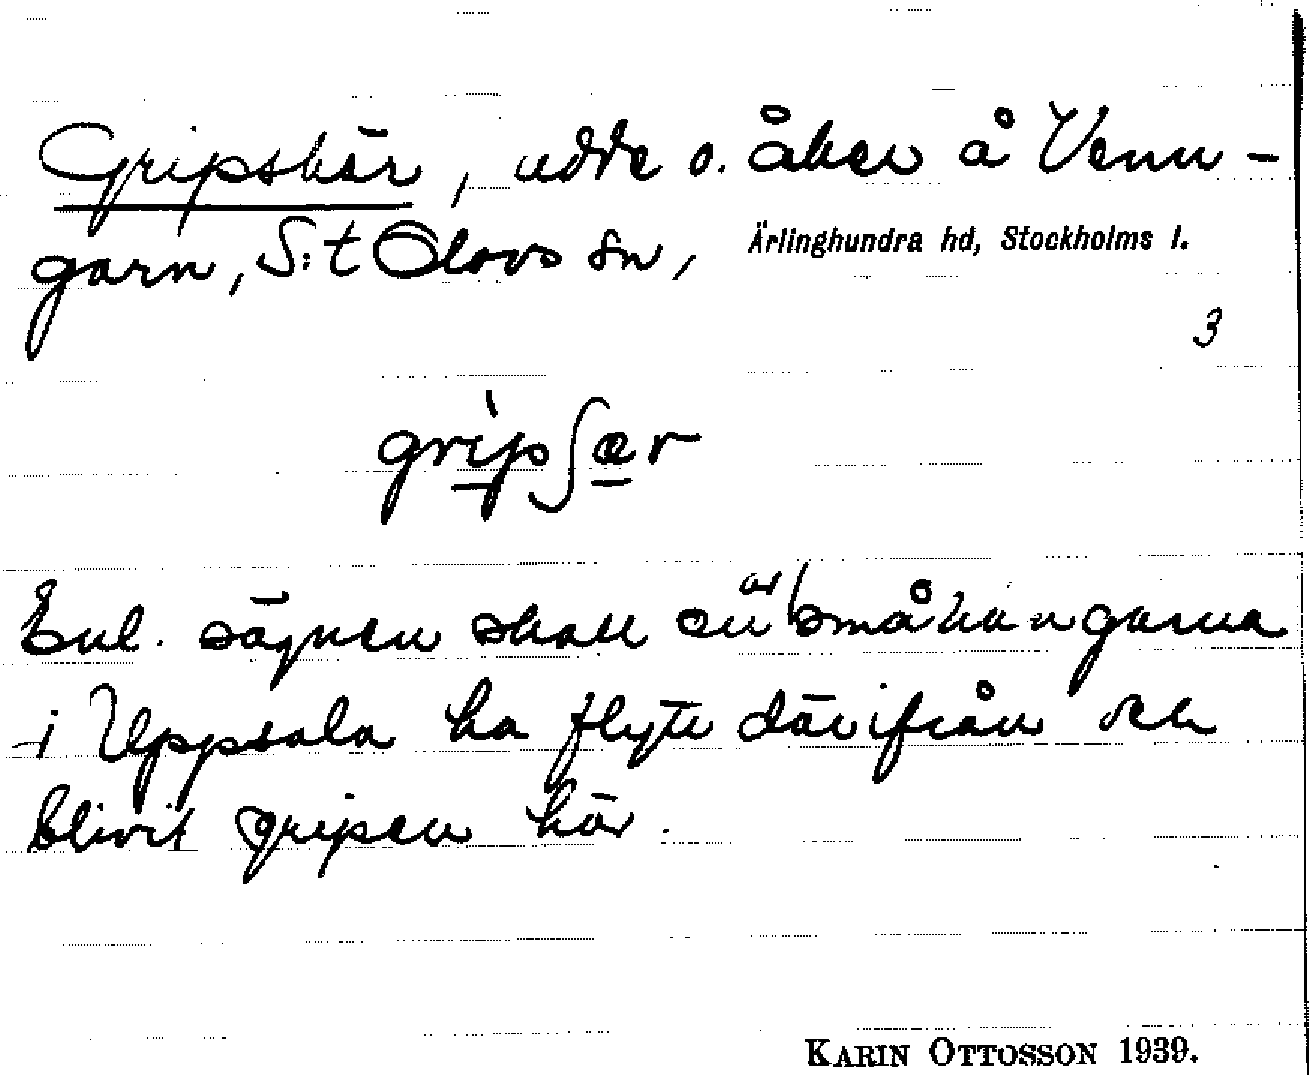 Gripskär, udde o. åker å Venn-
garn, S:t Olovs sn, Ärlinghundra hd, Stockholms l.
3
gripʃær
Enl. sägnen skall en av småkungarna
i Uppsala ha flytt därifrån och
blivit gripen här.
KARIN OTTOSSON 1939.